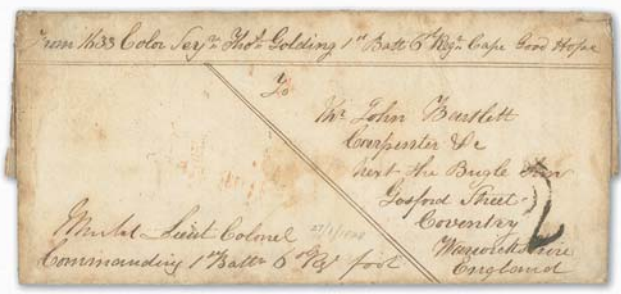 From 1633 Color Serjn Thos Golding 1st Batt 6th Regn Cape Good Hope
To
Mr John Bartlett
Carpenter &c
next the Bugle Inn
Gosford Street
Coventry
Warwickshire
England
2
Lieut Colonel
Commanding 1st Battn 6th Rgt foot